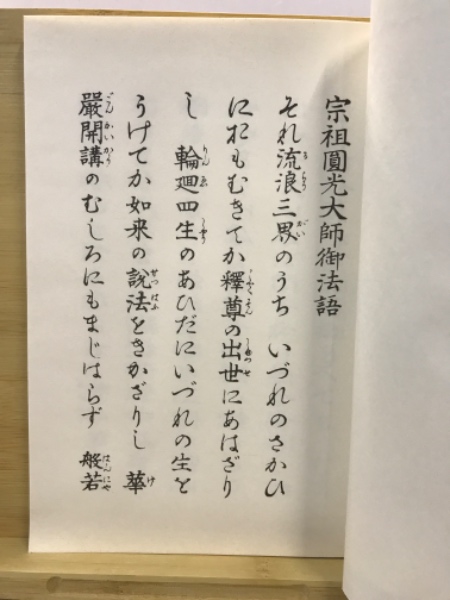 宗祖圓光大師御法語
それ流浪三界のうち　いづれのさかひ
におもむきてか釋尊の出世にあはざり
し　輪廻四生のあひだにいづれの生を
うけてか如来の説法をきかざりし　華
嚴開講のむしろにもまじはらず　般若